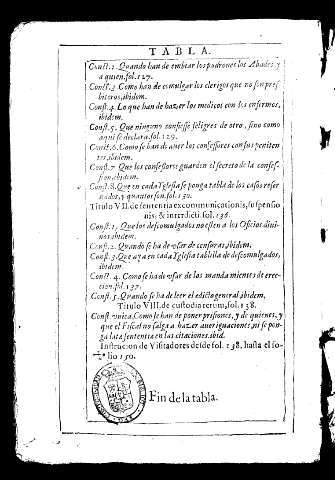 TABLA.
Const. 2. Quando han de embiar los padrones los Abades, y
a quien. fol. 127.
Const. 3. Como han de comulgar los clerigos que no son pres-
biteros, ibidem.
Const. 4. Lo que han de hazer los medicos con los enfermos,
ibidem.
Const. 5. Que ninguno confiesse feligres de otro, sino como
aqui se declara. fol. 129.
Const. 6. Como se han de auer los confessores con sus peniten
tes, ibidem.
Const. 7. Que los confessores guarden el secreto de la confes-
sion, ibidem.
Const. 8. Que en cada Iglesia se ponga tabla de los casos reser
uados, y quantos son. fol. 130.
Titulo VII. de sententia excommunicationis, suspensio
nis, & interdicti. fol. 136.
Const. 1. Que los descomulgados no esten a los Oficios diui-
nos, ibidem.
Const. 2. Quando se ha de vsar de censuras, ibidem.
Const. 3. Que aya en cada Iglesia tablilla de descomulgados,
ibidem.
Const. 4. Como se ha de vsar de los mandamientos de erec-
cion, fol. 137.
Const. 5. Quando se ha de leer el edicto general, ibidem,
Titulo VIII. de custodia reorum, fol. 138.
Const. vnica. Como se han de poner prisiones, y de quienes, y
que el Fiscal no salga a hazer aueriguaciones, ni se pon-
ga la sentencia en las citaciones. ibid.
Instrucion de Visitadores desde fol. 138. hasta el fo-
lio 150.
Fin de la tabla.